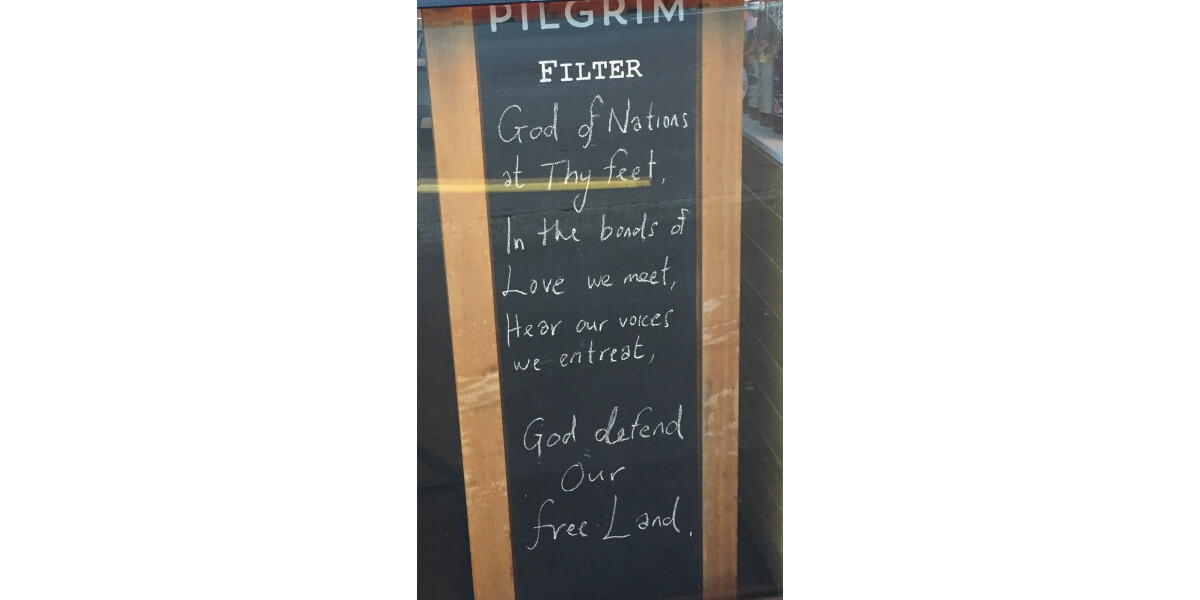 PILGRIM
FILTER
God of Nations
at Thy feet,
In the bonds of
Love we meet,
Hear our voices
we entreat,
God defend
Our
free Land.